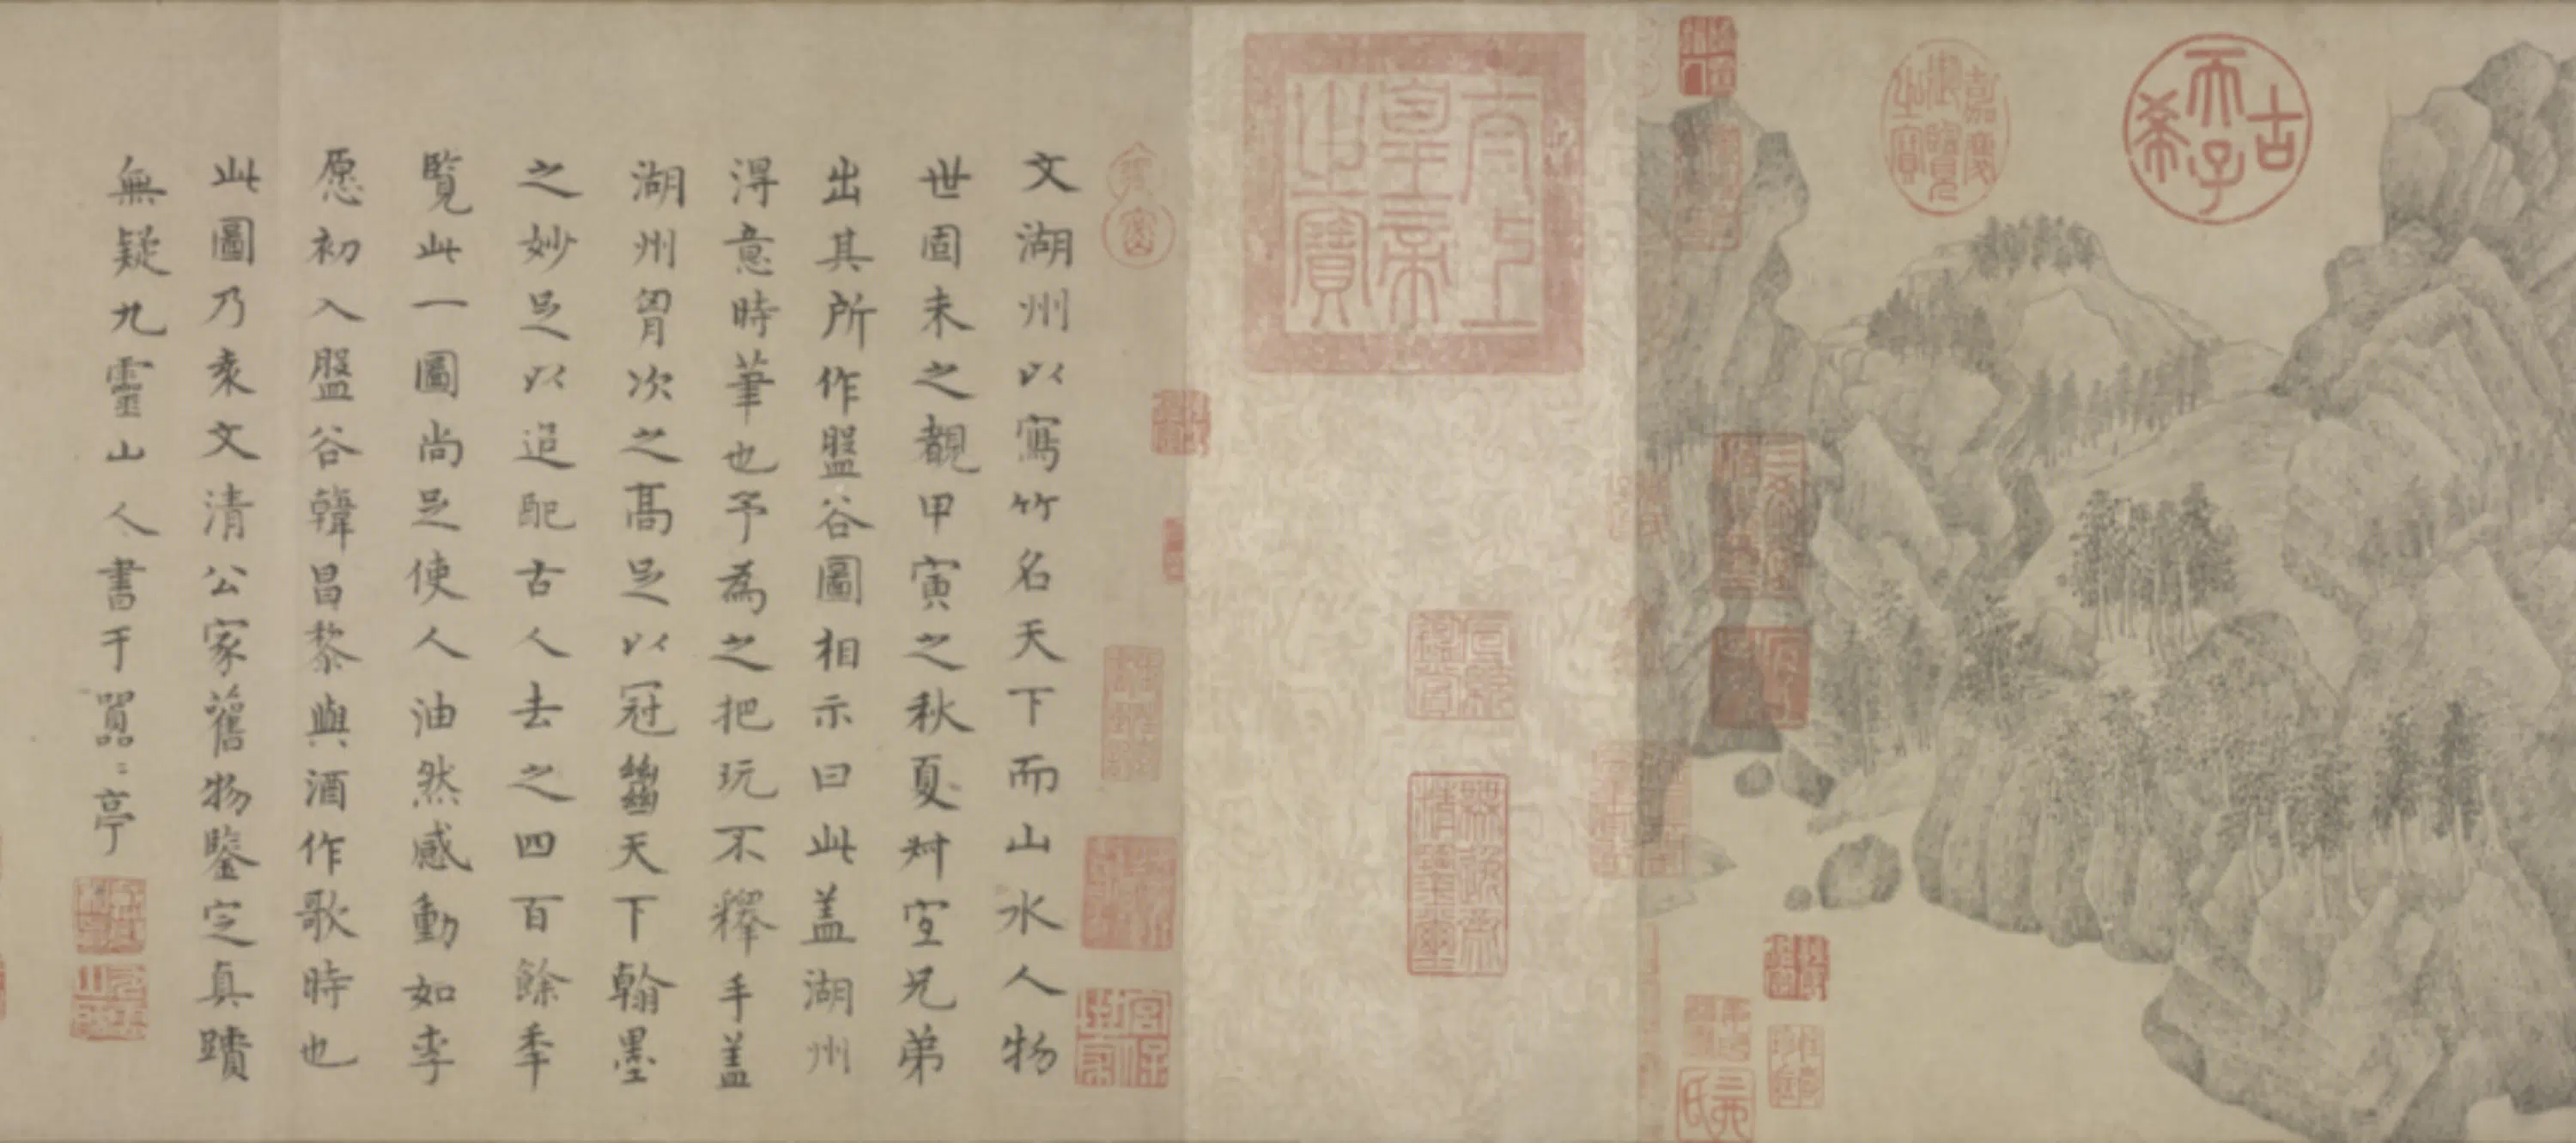 古希天子
嘉慶御覽之寶
三希堂精鑑璽
宜子孫
太上皇帝之寶
文湖州以寫竹名天下而山水人物
世固未之覩甲寅之秋夏叔宜兄弟
出其所作盤谷圖相示曰此蓋湖州
得意時筆也予為之把玩不釋手蓋
湖州胷次之高足以冠𢇍天下翰墨
之妙足以追配古人去之四百餘季
覽此一圖尚足使人油然感動如李
愿初入盤谷韓昌黎與酒作歌時也
此圖乃袁文清公家舊物鑒定真蹟
無疑九靈山人書于亭